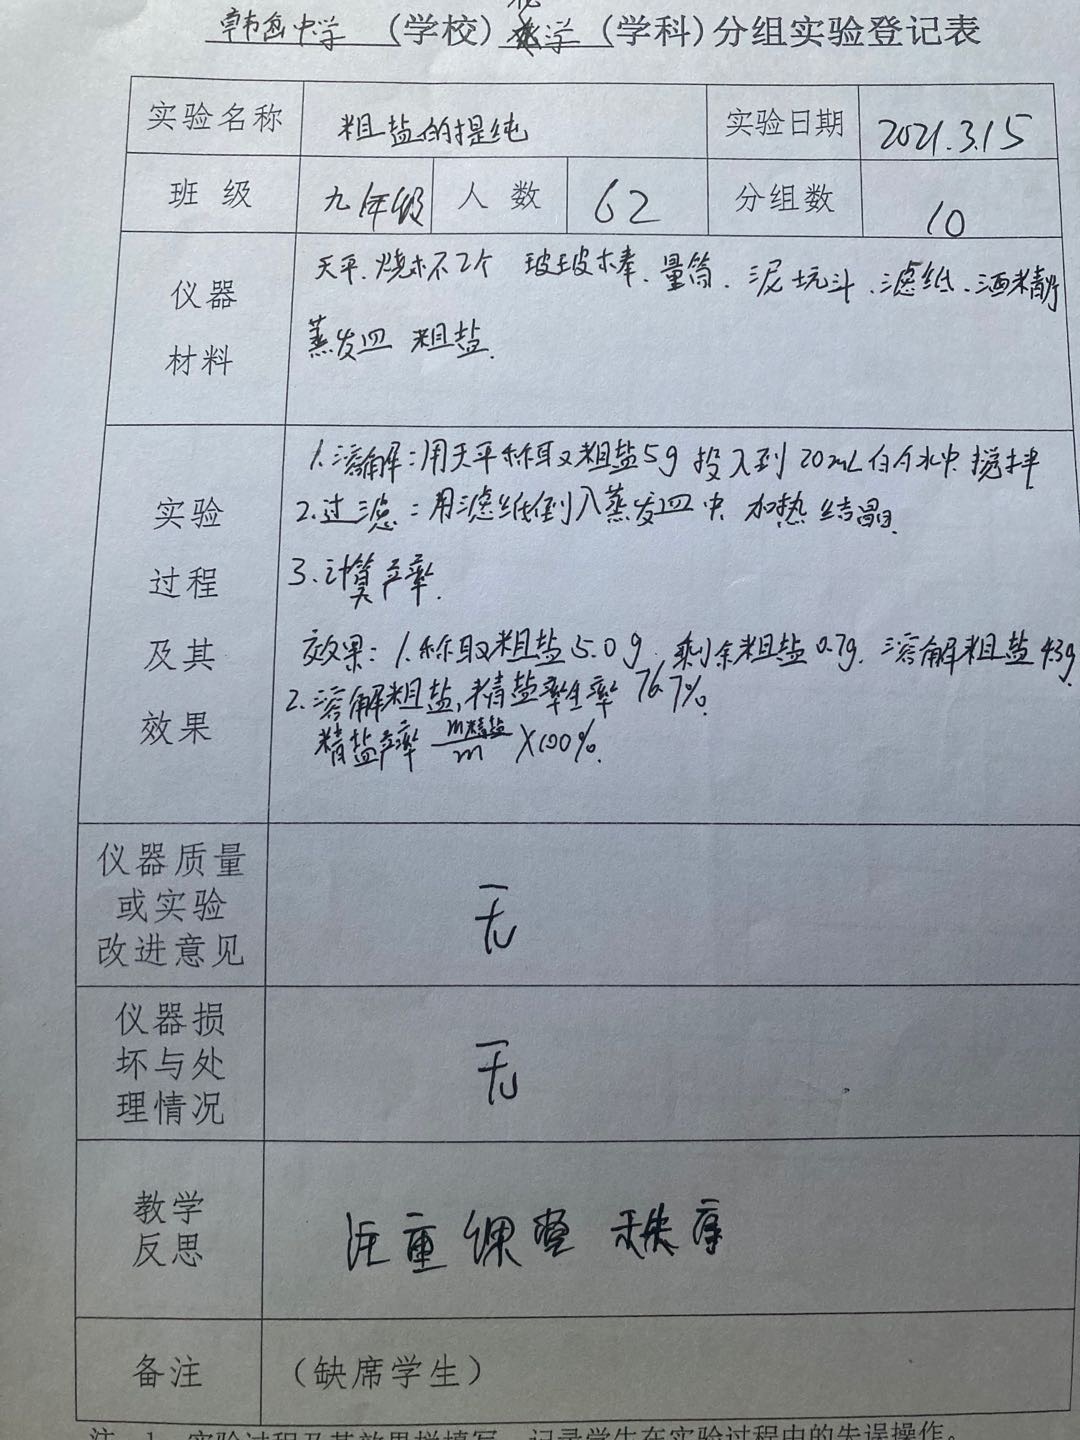 韩岔中学（学校）化学（学科）分组实验登记表
实验名称 粗盐的提纯 实验日期 2021.3.15
班级 九年级 人数 62 分组数 10
仪器材料 天平、烧杯2个 玻玻棒、量筒、泥坑斗、滤纸、酒精灯
蒸发皿 粗盐.
实验过程及其效果
1.溶解：用天平称取粗盐5g 投入到20mL的水中 搅拌
2.过滤：用滤纸倒入蒸发皿中 加热结晶.
3.计算产率.
效果：1.称取粗盐5.0g. 剩余粗盐0.7g. 溶解粗盐4.3g
2.溶解粗盐,精盐率生率76.7%.
精盐产率 m精盐/m ×100%.
仪器质量
或实验
改进意见
无
仪器损
坏与处
理情况
无
教学
反思
注重课堂秩序
备注 （缺席学生）
注 1、实验过程及其效果栏填写、记录学生在实验过程中的失误操作。